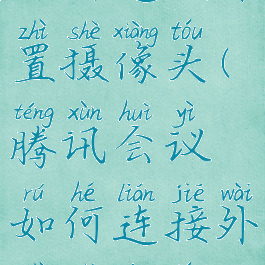 zhì shè xiàng tóu
置摄像头(
téng xùn huì yì
腾讯会议
rú hé lián jiē wài
如何连接外